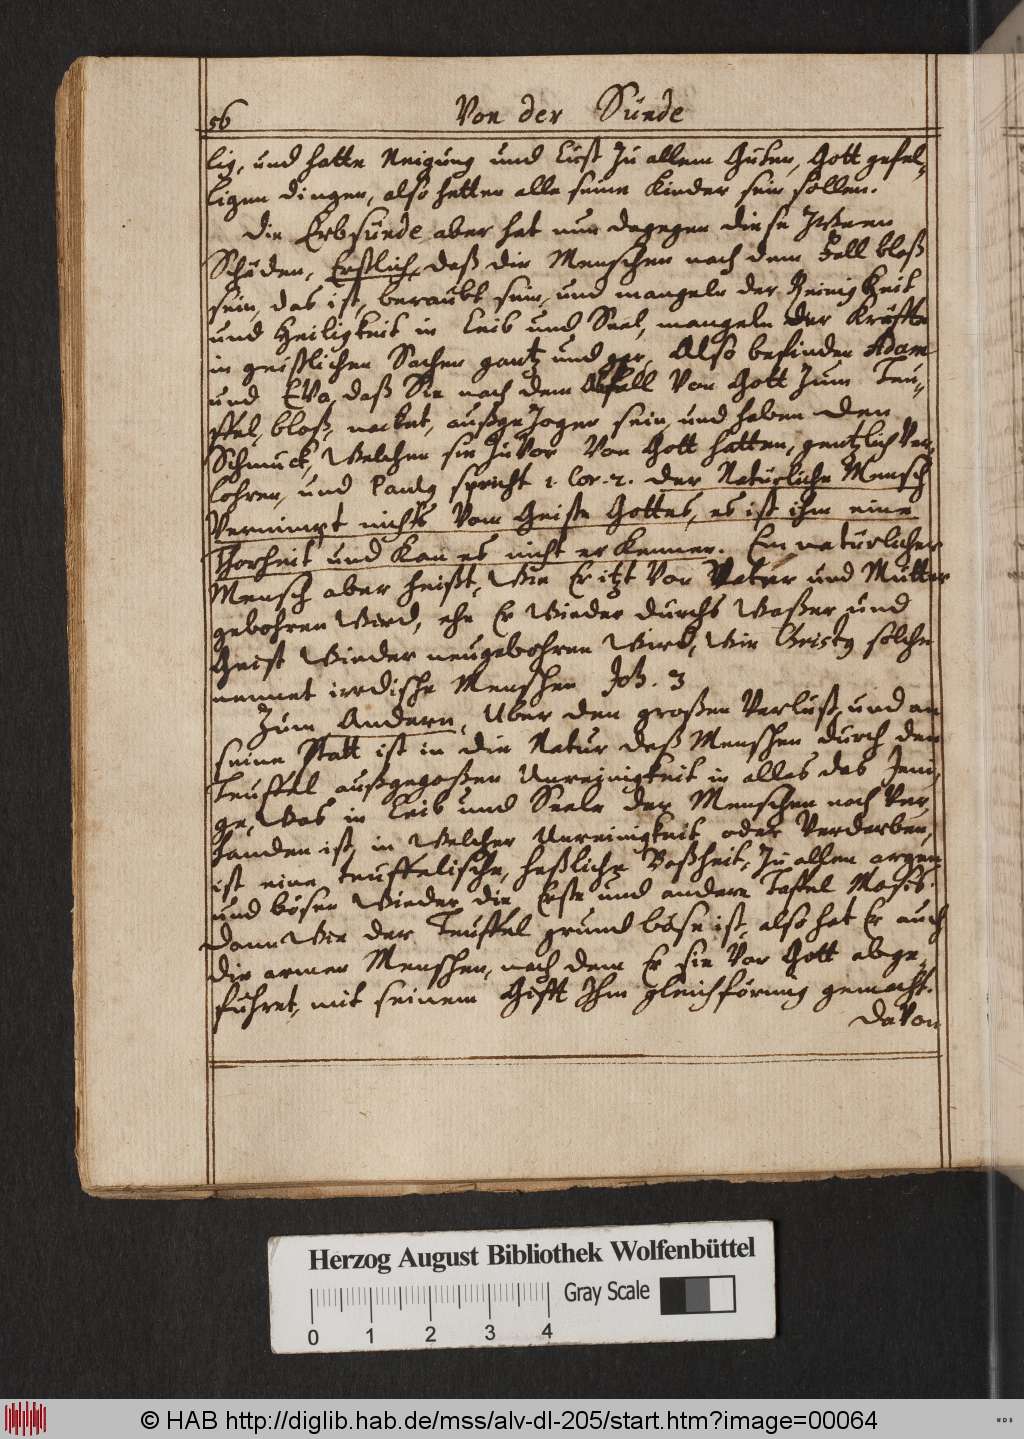 56 Von der Sünde
lig, und hatte Neigung und Lust Zu allem Guten, Gott gefel-
ligen dingen, also hetten alle seine Kinder sein sollen.
Die Erbsünde aber hat nun dagegen diese
Schäden, Erstlich, daß die Menschen nach dem Fall bloß
sein, das ist, beraubt sein, und mangeln der Reinigkeit
und Heiligkeit in Leib und Seel, mangeln der Kräffte
in geistlichen Sachen gantz und gar, Also befinden Adam
und EVa, daß Sie nach dem Abfall Von Gott Zum Teu-
ffel, bloß, nacket, außgeZogen sein, und haben den
Schmuck, Welchen sie ZuVor Von Gott hatten, gentzlich Ver-
lohren, und Paulg spricht 1 Cor. 2. der Natürliche Mensch
Vernimpt nichts Vom Geiste Gottes, es ist ihm eine
Thorheit und Kan es nicht erKennen. Ein natürlicher
Mensch aber heißt, Wie Er itzt Von Vater und Mutter
gebohren Wird, ehe Er Wieder durchs Waßer und
Geist Wieder neugebohren Wird, Wie Christg solche
nennet irrdische Menschen Joh. 3
Zum Andern, Uber den großen Verlust, und an
seine Statt ist in die Natur deß Menschen durch den
Teuffel außgegoßen Unreinigkeit in alles das Jeni-
ge, Was in Leib und Seele der Menschen noch Ver-
handen ist, in Welcher Unreinigkeit oder Verderben,
ist eine teuffelische, heßliche Boßheit, Zu allem argen
und bösen Wieder die Erste und andere Taffel Mosis.
Dann Wie der Teuffel grund böse ist, also hat Er auch
die armen Menschen, nach dem Er sie Von Gott abge-
führet, mit seinem Gifft Ihm gleichförmig gemacht.
DaVon
Herzog August Bibliothek Wolfenbüttel
Gray Scale
0 1 2 3 4
© HAB http://diglib.hab.de/mss/alv-dl-205/start.htm?image=00064
WDB